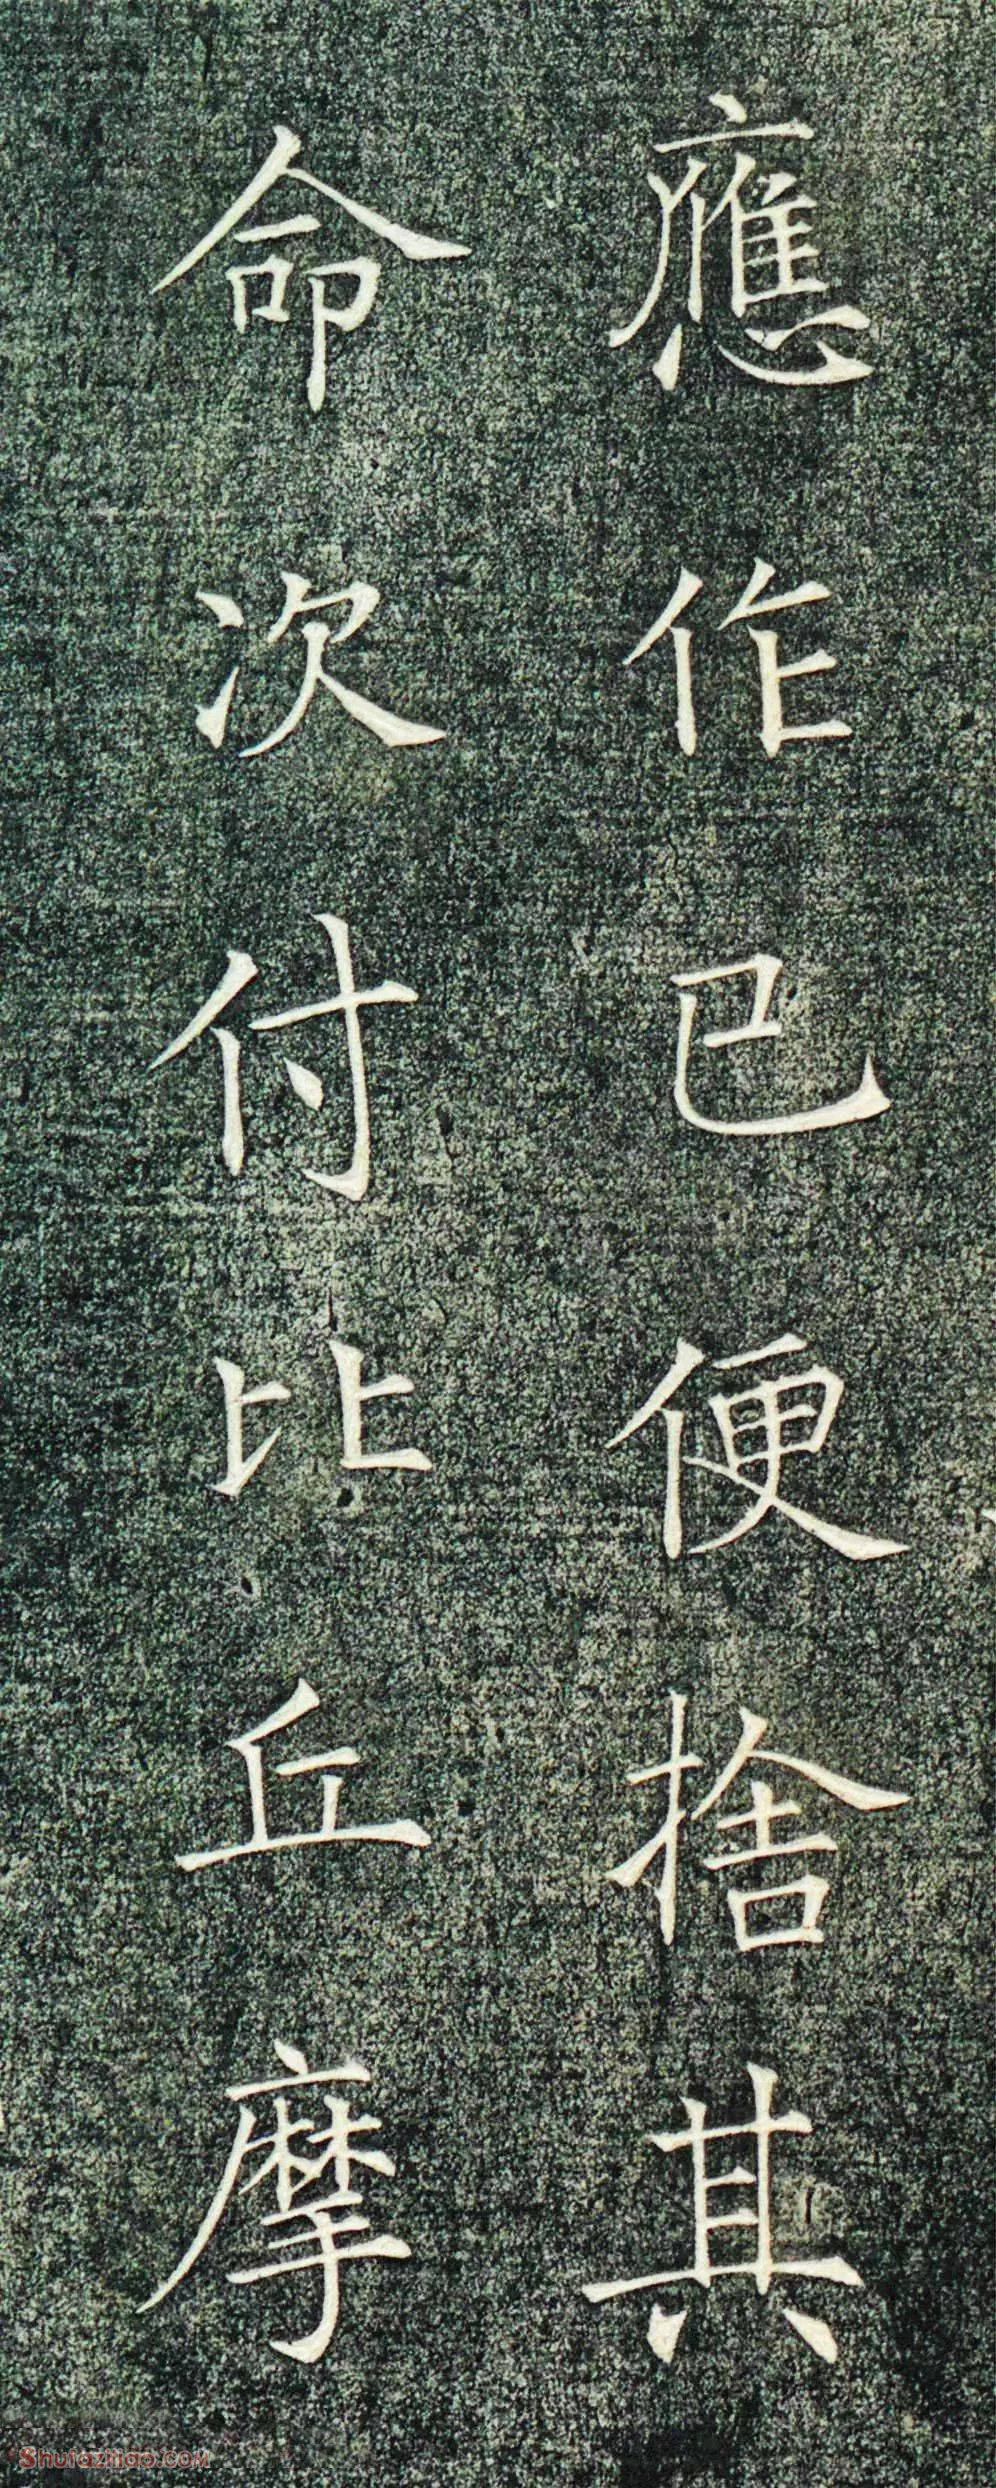 應作已便捨其
命次付比丘摩
Shufaziliao.COM